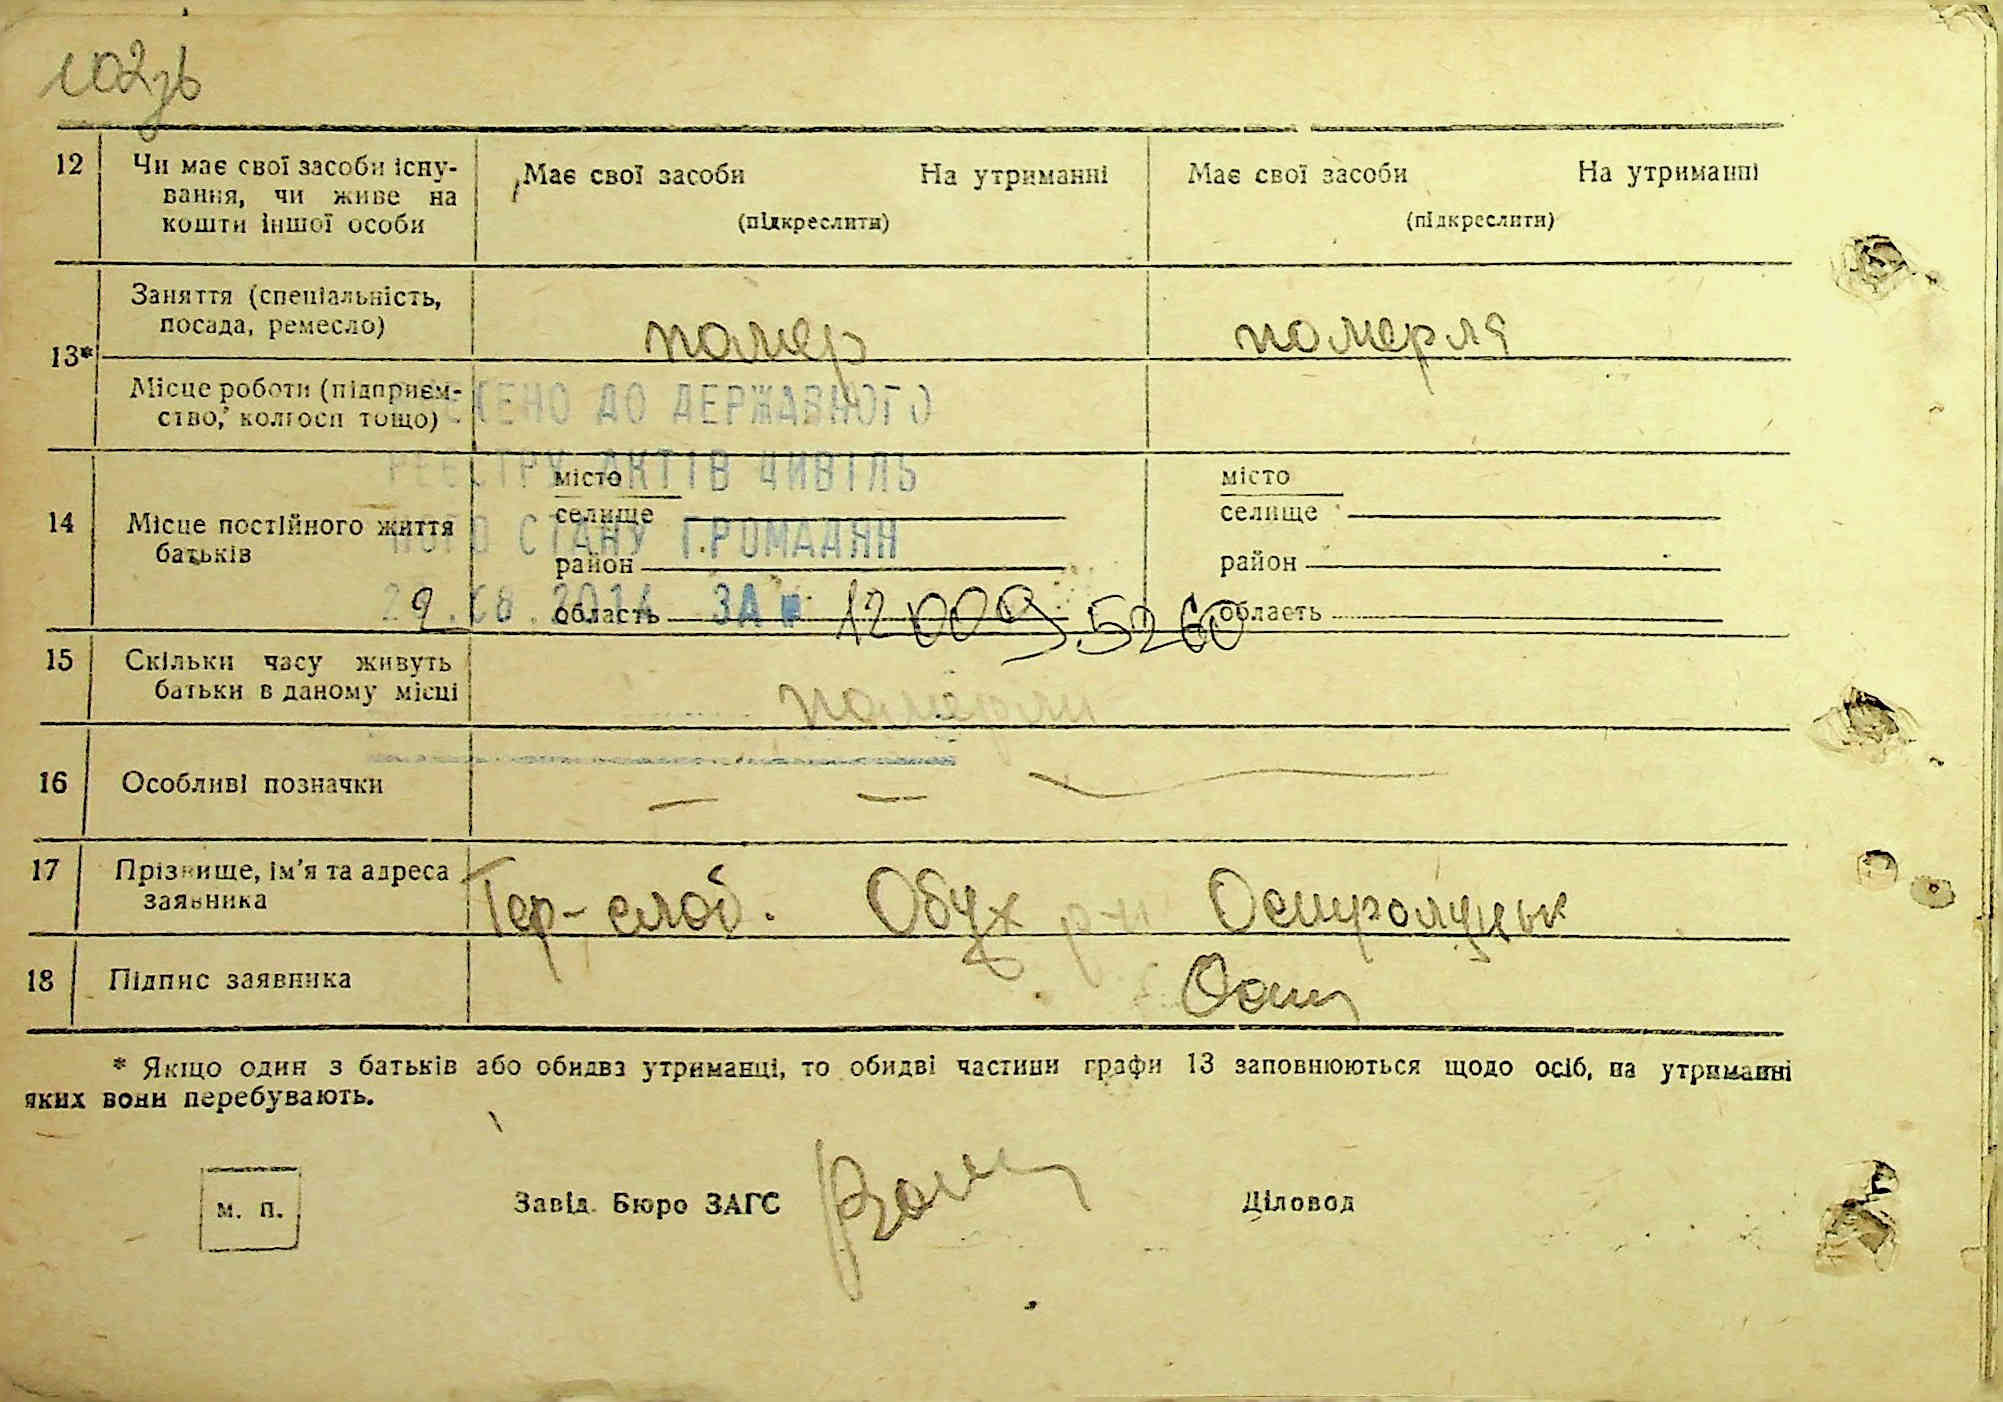 102зв
12
Чи має свої засоби існу-
вання, чи живе на
кошти іншої особи
Має свої засоби На утриманні
(підкреслити)
Має свої засоби На утриманні
(підкреслити)
13*
Заняття (спеціальність,
посада, ремесло)
помер
померля
Місце роботи (підприєм-
ство, колгосп тощо)
ЕНО ДО ДЕРЖАВНОГО
РЕЄСТРУ АКТІВ ЦИВІЛЬ
НОГО СТАНУ ГРОМАДЯН
29.08.2014 ЗА № 12 0009 5260
14
Місце постійного життя
батьків
місто
селище
район
область
місто
селище
район
область
15
Скільки часу живуть
батьки в даному місці
померли
16
Особливі позначки
— —
17
Прізвище, ім'я та адреса
заявника
Гер-слоб. Обух р-н
18
Підпис заявника
* Якщо один з батьків або обидва утриманці, то обидві частини графи 13 заповнюються щодо осіб, на утриманні
яких вони перебувають.
м. п.
Завід. Бюро ЗАГС
Діловод